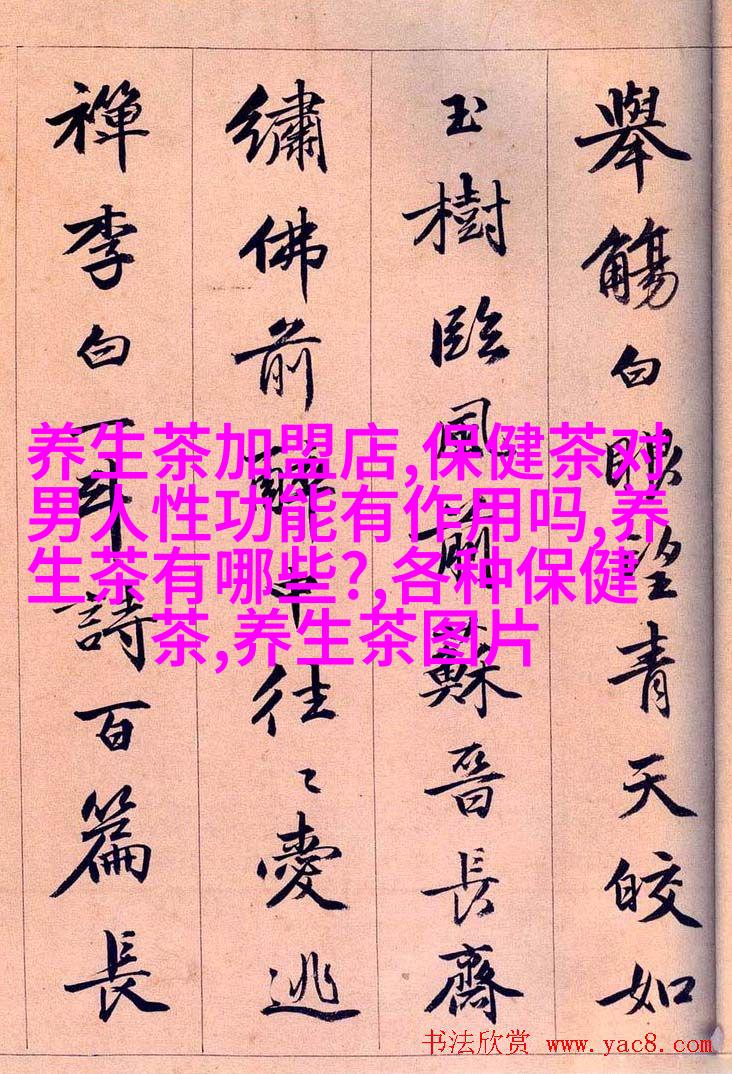 舉觴白眼望青天皎如
玉樹臨風前蘇晉長齋
繡佛前醉中往〻愛逃
禪李白一斗詩百篇長
养生茶加盟店,保健茶对
男人性功能有作用吗,养
生茶有哪些?,各种保健
茶,养生茶图片
书法欣赏 www.yac8.com